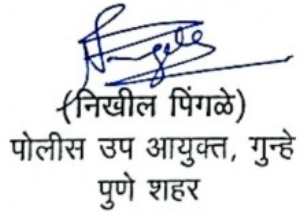 (निखील पिंगळे)
पोलीस उप आयुक्त, गुन्हे
पुणे शहर